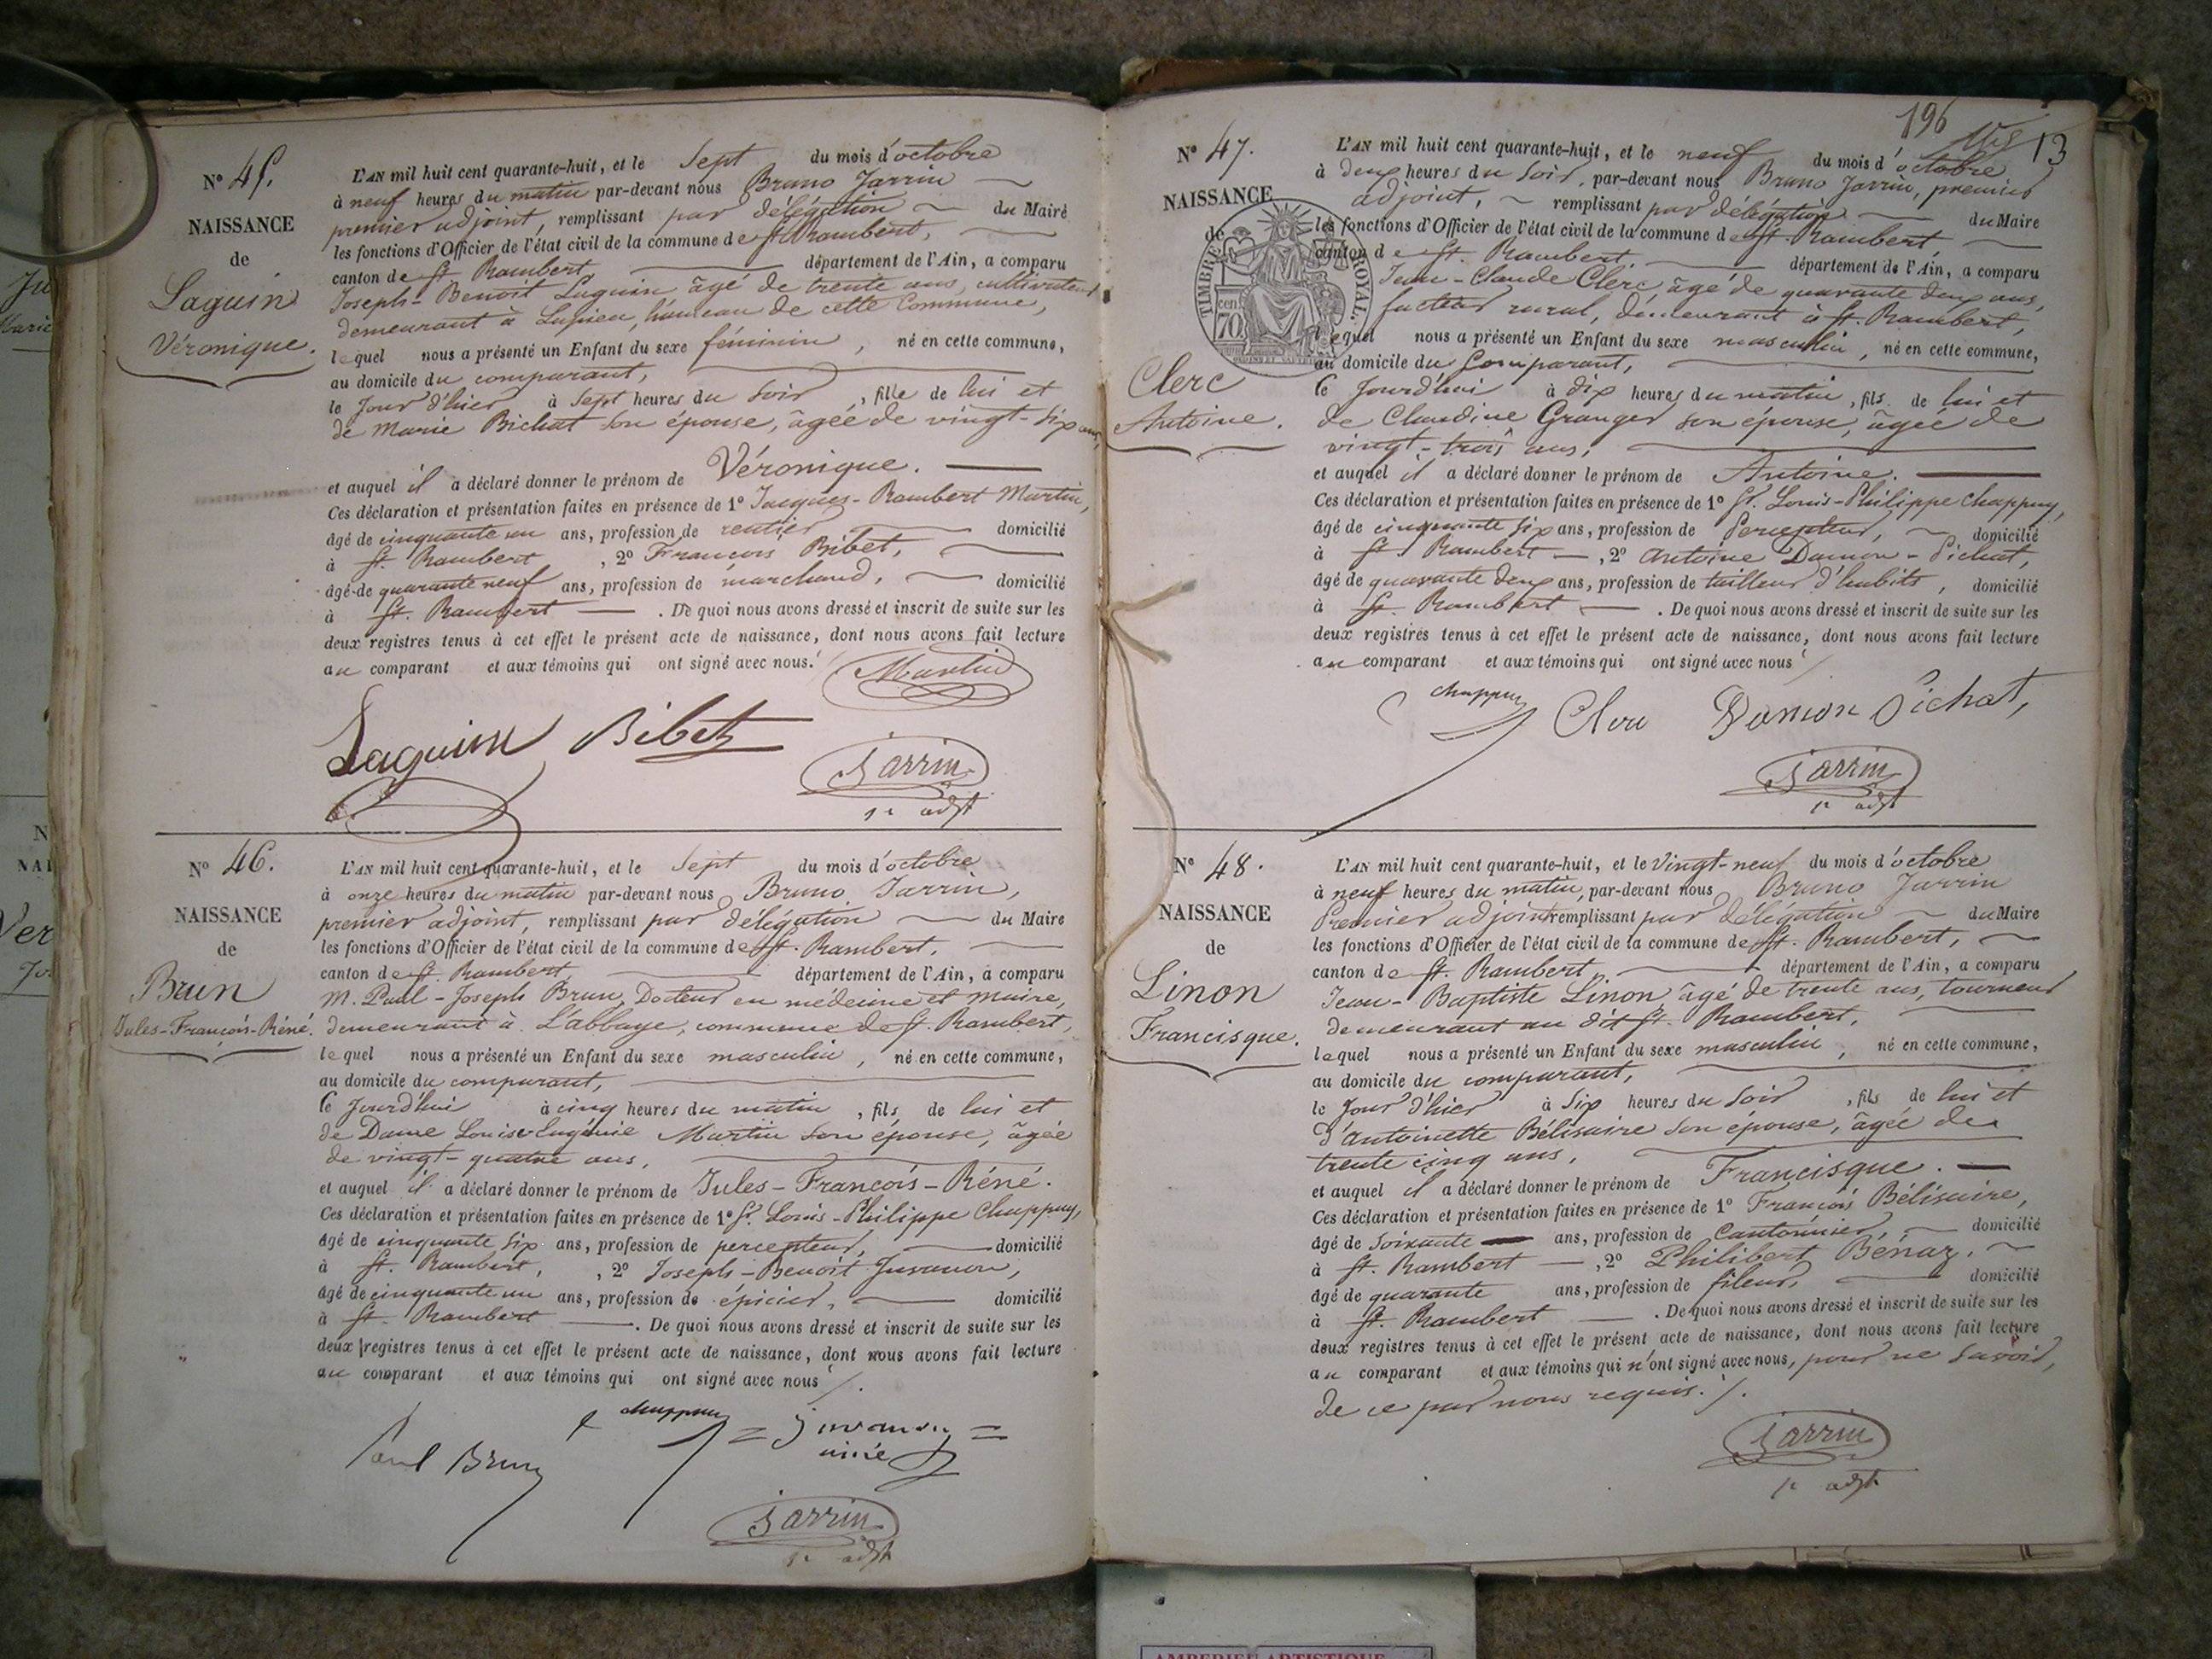 N° 45.
NAISSANCE
de
Laguin
Véronique.
L'AN mil huit cent quarante-huit, et le Sept du mois d'octobre
à neuf heures du matin par-devant nous Bruno Jarrin
premier adjoint, remplissant par délégation du Maire
les fonctions d'Officier de l'état civil de la commune de St. Rambert,
canton de St. Rambert département de l'Ain, a comparu
Joseph-Benoit Laguin âgé de trente ans, cultivateur
demeurant à hameau de cette Commune,
lequel nous a présenté un Enfant du sexe féminin, né en cette commune,
au domicile du comparant,
le Jour d'hier à Sept heures du Soir, fille de lui et
de Marie Bichat son épouse, âgée de vingt-Six ans,
et auquel il a déclaré donner le prénom de Véronique.
Ces déclaration et présentation faites en présence de 1° Jacques-Rambert Martin,
âgé de cinquante un ans, profession de rentier domicilié
à St. Rambert, 2° François Bibet,
âgé de quarante neuf ans, profession de marchand, domicilié
à St. Rambert. De quoi nous avons dressé et inscrit de suite sur les
deux registres tenus à cet effet le présent acte de naissance, dont nous avons fait lecture
au comparant et aux témoins qui ont signé avec nous.
Martin
Laguin Bibet
Jarrin
1er adjt
N° 46.
NAISSANCE
de
Brun
Jules-François-Réné.
L'AN mil huit cent quarante-huit, et le Sept du mois d'octobre
à onze heures du matin par-devant nous Bruno Jarrin,
premier adjoint, remplissant par délégation du Maire
les fonctions d'Officier de l'état civil de la commune de St. Rambert,
canton de St. Rambert département de l'Ain, a comparu
M. Paul-Joseph Brun, Docteur en médecine et Maire,
demeurant à L'abbaye, commune de St. Rambert,
lequel nous a présenté un Enfant du sexe masculin, né en cette commune,
au domicile du comparant,
le Jourd'hui à cinq heures du matin, fils de lui et
de Dame Louise Eugénie Martin son épouse, âgée
de vingt-quatre ans,
et auquel il a déclaré donner le prénom de Jules-François-Réné.
Ces déclaration et présentation faites en présence de 1° Sr. Louis-Philippe Chappuy,
âgé de cinquante Six ans, profession de percepteur, domicilié
à St. Rambert, 2° Joseph-Benoit Juvanon,
âgé de cinquante un ans, profession de épicier, domicilié
à St. Rambert. De quoi nous avons dressé et inscrit de suite sur les
deux registres tenus à cet effet le présent acte de naissance, dont nous avons fait lecture
au comparant et aux témoins qui ont signé avec nous
Paul Brun chappuy = juvanon =
Jarrin
1er adjt
196
13
N° 47.
NAISSANCE
de
Clerc
Antoine.
TIMBRE ROYAL.
70 cen
L'AN mil huit cent quarante-huit, et le neuf du mois d'octobre
à deux heures du Soir, par-devant nous Bruno Jarrin, premier
adjoint, remplissant par délégation du Maire
les fonctions d'Officier de l'état civil de la commune de St. Rambert,
canton de St. Rambert. département de l'Ain, a comparu
Jean-Claude Clerc, âgé de quarante deux ans,
facteur rural, demeurant à St. Rambert,
lequel nous a présenté un Enfant du sexe masculin, né en cette commune,
au domicile du Comparant,
le Jourd'hui à dix heures du matin, fils de lui et
de Claudine Granger son épouse, âgée de
vingt-trois ans,
et auquel il a déclaré donner le prénom de Antoine.
Ces déclaration et présentation faites en présence de 1° Sr. Louis-Philippe Chappuy,
âgé de cinquante Six ans, profession de Percepteur, domicilié
à St. Rambert, 2° Antoine Damon-Pichat,
âgé de quarante deux ans, profession de tailleur d'habits, domicilié
à St. Rambert. De quoi nous avons dressé et inscrit de suite sur les
deux registres tenus à cet effet le présent acte de naissance, dont nous avons fait lecture
au comparant et aux témoins qui ont signé avec nous
chappuy Clerc Damon Pichat,
Jarrin
1er adjt
N° 48.
NAISSANCE
de
Linon
Francisque.
L'AN mil huit cent quarante-huit, et le Vingt-neuf du mois d'octobre
à neuf heures du matin, par-devant nous Bruno Jarrin
Premier adjoint remplissant par délégation du Maire
les fonctions d'Officier de l'état civil de la commune de St. Rambert,
canton de St. Rambert département de l'Ain, a comparu
Jean-Baptiste Linon, âgé de trente ans, tourneur
demeurant au dit St. Rambert,
lequel nous a présenté un Enfant du sexe masculin, né en cette commune,
au domicile du comparant,
le Jour d'hier à Six heures du Soir, fils de lui et
d'Antoinette Bélisaire son épouse, âgée de
trente cinq ans,
et auquel il a déclaré donner le prénom de Francisque.
Ces déclaration et présentation faites en présence de 1° François Bélisaire,
âgé de Soixante ans, profession de Cantonnier, domicilié
à St. Rambert, 2° Philibert Bénaz,
âgé de quarante ans, profession de fileur, domicilié
à St. Rambert. De quoi nous avons dressé et inscrit de suite sur les
deux registres tenus à cet effet le présent acte de naissance, dont nous avons fait lecture
au comparant et aux témoins qui n'ont signé avec nous, pour ne Savoir,
de ce par nous requis.
Jarrin
1er adjt
AMBERIEU ARTISTIQUE